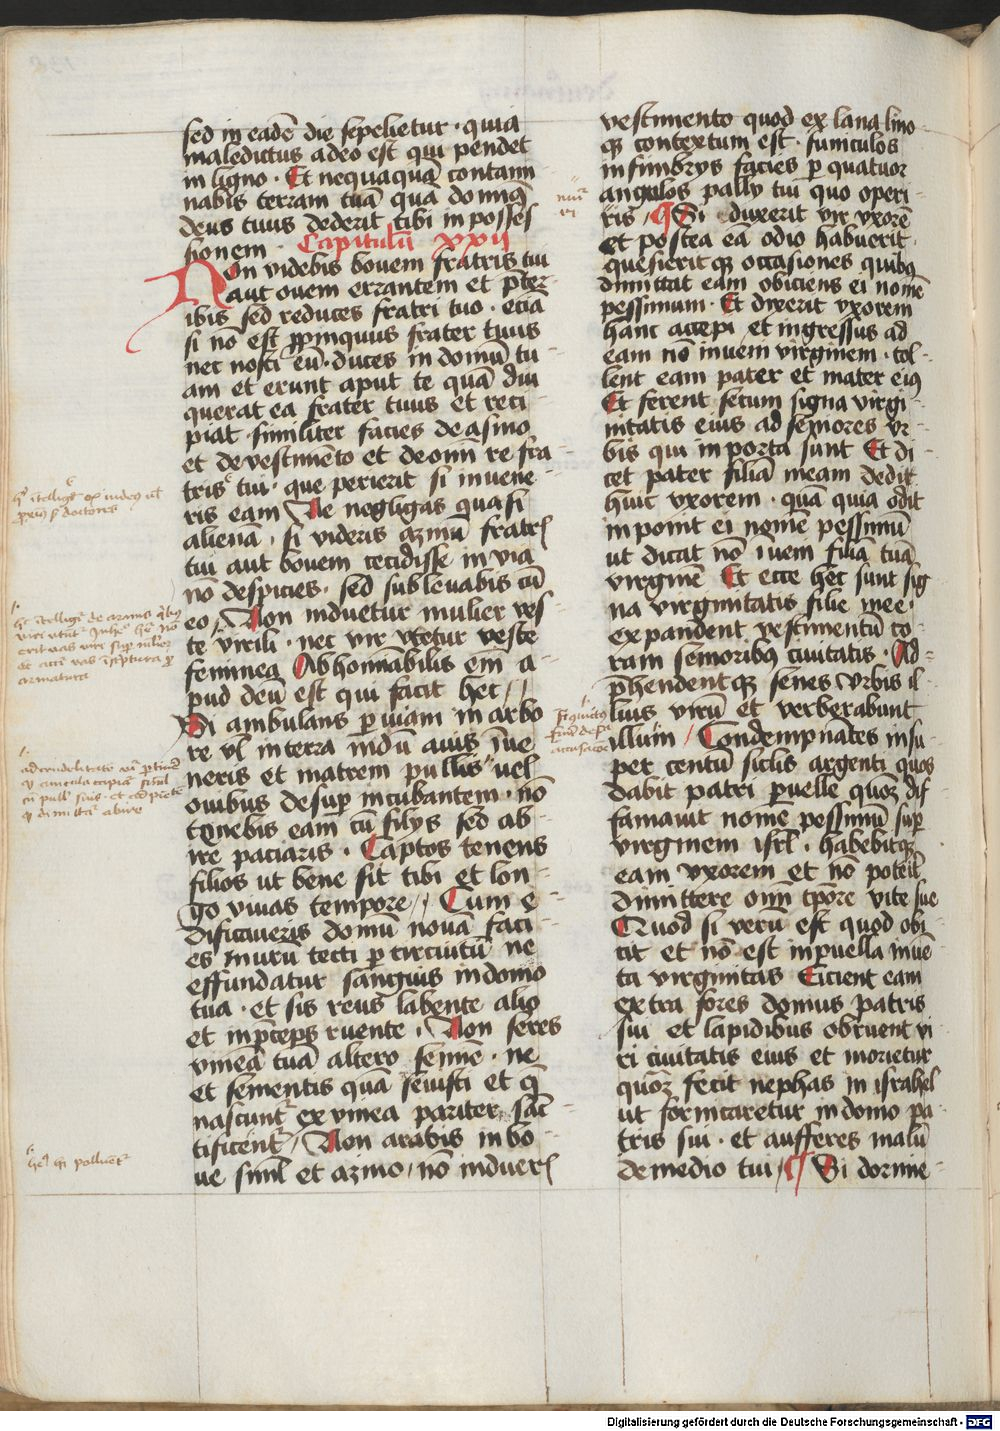 sed in eadē die sepelietur · quia
maledictus a deo est qui pendet
in ligno · Et nequaquā contami
nabis terram tuā quā dominꝰ
deus tuus dederit tibi in posses
sionem · Capitulū xxii
Non videbis bovem fratris tui
aut ovem errantem et p̄ter
ibis sed reduces fratri tuo · etiā
si nō est ꝓpinquus frater tuus
nec nosti eū · duces in domū tu
am et erunt aput te quā diu
querat ea frater tuus et reci
piat · similiter facies de asino
et de vestimēto et de omī re fra
tris tui · que perierit si invene
ris eam Ne negligas quasi
alienā · si videris azinū fratrꝭ
tui aut bovem cecidisse in via
nō despicies · sed sublevabis cū
eo / Non induetur mulier ves
te virili · nec vir vtetur veste
feminea Abhominabilis em̄ a
pud deū est qui facit hec //
Si ambulans ꝑ viam in arbo
re vl̄ in terra nidū avis īve
neris et matrem pullis vel
ovibus desuꝑ incubantem · nō
tenebis eam cū filys sed ab
ire paciaris · Captos tenens
filios ut bene sit tibi et lon
go vivas tempore // Cum e
dificaveris domū novā faci
es murū tecti ꝑ circuitū ne
effundatur sanguis in domo
tua · et sis reus labente alio
et in p̄ceps ruente · Non seres
vineā tuā altero semīe · ne
et sementis quā sevisti et q̄
nascunt᷑ ex vinea pariter sāc
tificent᷑ / Non arabis in bo
ve siml̄ et azino / nō induerꝭ
vestimento quod ex lana lino
qꝫ contextum est · funiculos
in fimbrys facies ꝑ quatuor
angulos pally tui quo operi
ris / ¶ Si duxerit vir vxorē
et postea eā odio habuerit ·
quesieritqꝫ occasiones quibꝰ
dimittat eam obiciens ei nomē
pessimum · Et dixerit vxorem
hanc accepi et ingressus ad
eam nō inveni virginem · tol
lent eam pater et mater eiꝰ
Et ferent secum signa virgi
nitatis eius ad seniores vr
bis qui in porta sunt Et di
cet pater filiā meam dedit
huic vxorem · quā quia odit
inponit ei nomē pessimū
ut dicat nō īvem filiā tuā
virginē Et ecce hec sunt sig
na virginitatis filie mee ·
expandent vestimentū co
ram senioribꝰ civitatis · Ad
p̄hendentqꝫ senes vrbis il
lius virū et verberabunt
illum / Condempnātes insu
per centū siclis argenti quos
dabit patri puelle quōꝫ dif
famavit nomē pessimū suꝑ
virginem isrl̄ · habebitqꝫ
eam vxorem et nō poteit
dimittere omī tꝑore vite sue
Quod si verū est quod obi
cit et nō est in puella invē
ta virginitas Eicient eam
extra fores domus patris
sui et lapidibus obruent vi
ri civitatis eius et morietur
quōꝫ fecit nephas in israhel
ut fornicaretur in domo pa
tris sui · et aufferes malū
de medio tui / ¶ Si dormie
Digitalisierung gefördert durch die Deutsche Forschungsgemeinschaft - DFG